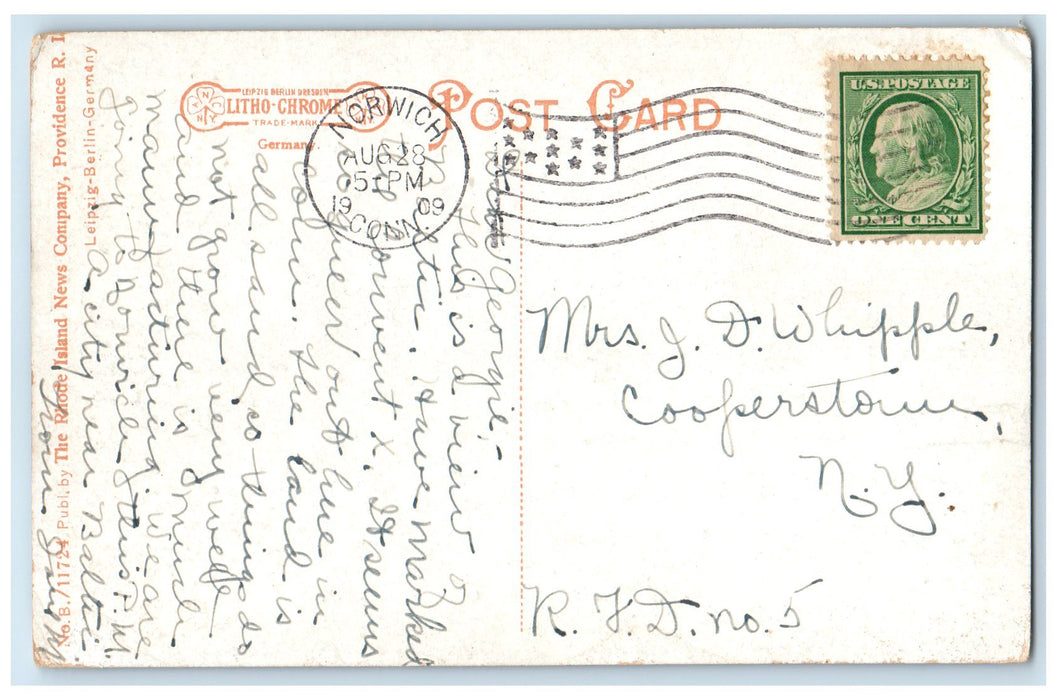 LEIPZIG BERLIN DRESDEN
LITHO-CHROME
TRADE-MARK
Germany.
POST CARD
NORWICH
AUG 28
5 PM
1909
CONN.
U.S. POSTAGE
ONE CENT
Dear Georgie,-
This is a view of
Baltic. Have marked
the convent X. It seems
queer out here in
Conn. The land is
all sand, so things do
not grow very well
and there is much
manufacturing. We are
going to Norwich this P.M.
A city near Baltic.
From
Mrs. J. D. Whipple,
Cooperstown,
N.Y.
R.F.D. no. 5
No. B./11724 Publ. by The Rhode Island News Company, Providence R. I.
Leipzig-Berlin-Germany